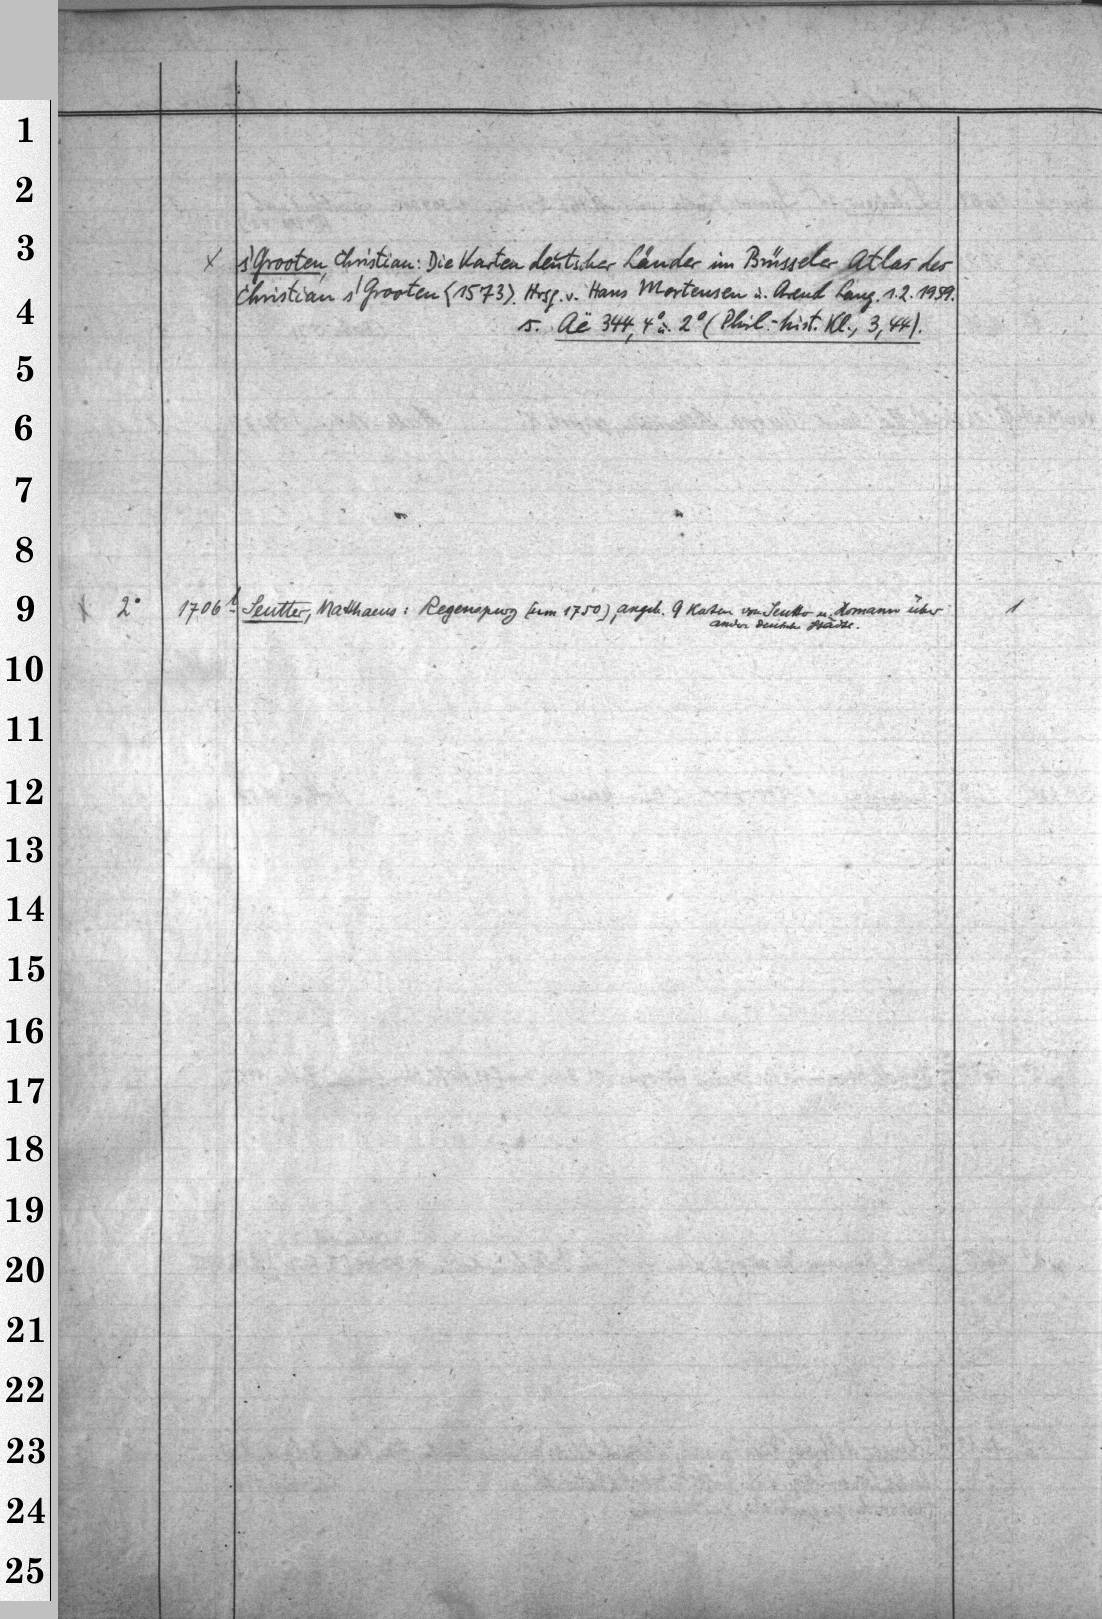 1
2
3
x s'Grooten, Christian: Die Karten deutscher Länder im Brüsseler Atlas des
Christian s'Grooten (1573). Hrsg. v. Hans Mortensen u. Arend Lang. 1.2. 1959.
4
s. Aë 344, 4° u. 2° (Phil.-hist. Kl., 3, 44).
5
6
7
8
9
x 2° 1706 b Seutter, Matthaeus: Regenspurg (um 1750), angeb. 9 Karten von Seutter u. Homann über 1
andere deutsche Städte.
10
11
12
13
14
15
16
17
18
19
20
21
22
23
24
25